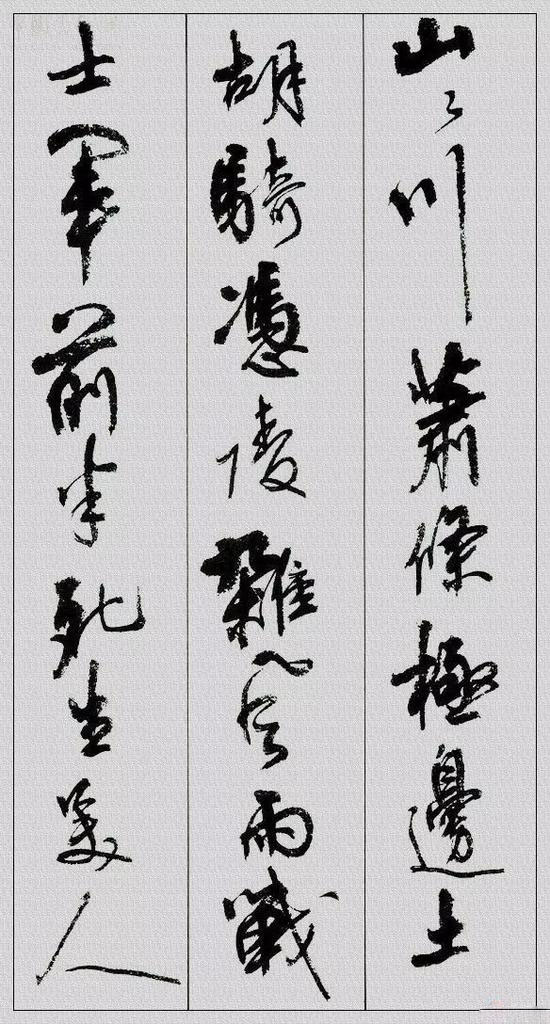 山〻川蕭條極邊土
胡騎憑陵雜風雨戰
士軍前半死生美人